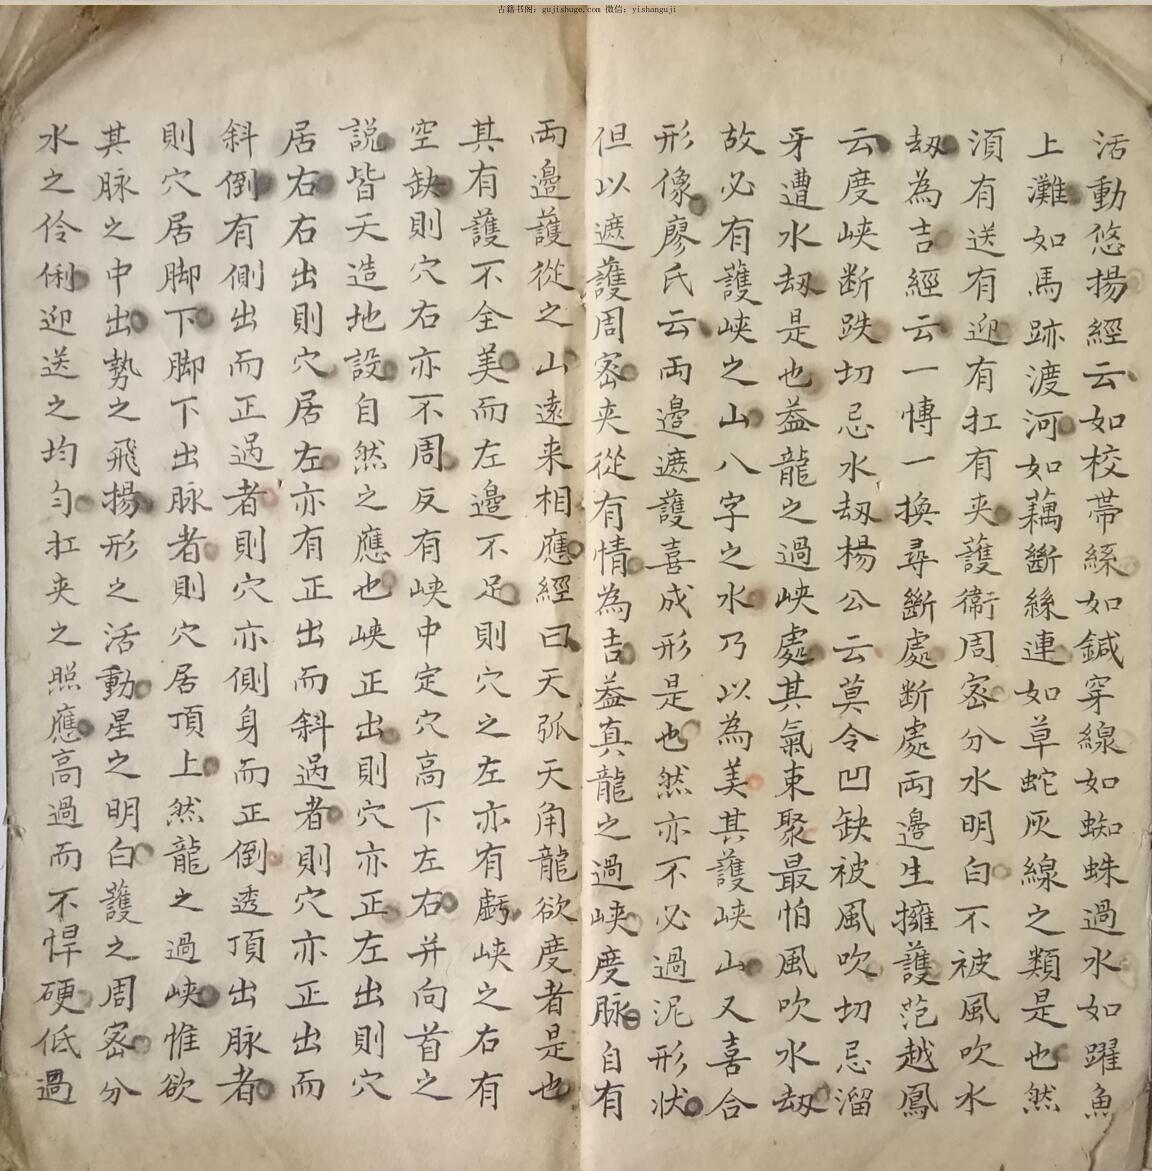 古籍书阁：gujishuge.com 微信：yishanguji
活動悠揚經云如校帶絲如鍼穿線如蜘蛛過水如躍魚
上灘如馬跡渡河如藕斷絲連如草蛇灰線之類是也然
湏有送有迎有扛有夾護衛周密分水明白不被風吹水
刼為吉經云一愽一換尋斷處断處両邉生擁護范越鳳
云度峡断跌切忌水刼楊公云莫令凹缺被風吹切忌溜
牙遭水刼是也葢龍之過峡處其氣束聚最怕風吹水刼
故必有護峡之山八字之水乃以為美其護峡山又喜合
形像廖氏云両邉遮護喜成形是也然亦不必過泥形状
但以遮護周密夾從有情為吉葢真龍之過峡度脉自有
両邉護從之山遠来相應經曰天弧天角龍欲度者是也
其有護不全美而左邉不足則穴之左亦有虧峡之右有
空缺則穴右亦不周反有峡中定穴高下左右并向首之
説皆天造地設自然之應也峡正出則穴亦正左出則穴
居右右出則穴居左亦有正出而斜過者則穴亦正出而
斜倒有側出而正過者則穴亦側身而正倒透頂出脉者
則穴居脚下脚下出脉者則穴居頂上然龍之過峡惟欲
其脉之中出勢之飛揚形之活動星之明白護之周密分
水之伶俐迎送之均匀扛夾之照應高過而不悍硬低過